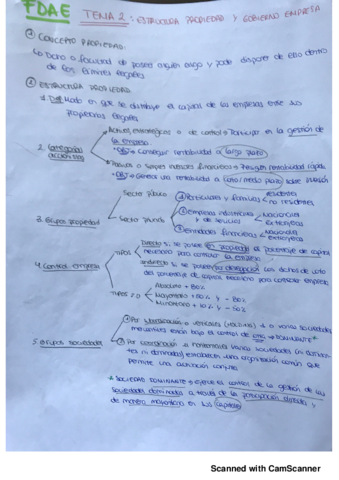 FDAE
TEMA 2: ESTRUCTURA PROPIEDAD Y GOBIERNO EMPRESA
① CONCEPTO PROPIEDAD:
Dcho o facultad de poseer alguien algo y poder disponer de ello dentro
de los límites legales
② ESTRUCTURA PROPIEDAD
1. Def: Modo en que se distribuye el capital de las empresas entre sus
propietarios legales
2. Categorías accionistas
Activos, estratégicos o de control → Participar en la gestión de
la empresa
• OBJ → Conseguir rentabilidad a largo plazo
Pasivos o simples inversores financieros → Persiguen rentabilidad rápida
• OBJ → Genera una rentabilidad a corto/medio plazo sobre
3. Grupos propiedad
Sector público
Sector privado
① Particulares y familias
residentes
no residentes
② Empresas industriales y de servicios
Nacionales
Extranjeras
③ Entidades financieras
Nacionales
extranjeras
4. Control empresa
TIPOS
Directo: si se posee en propiedad el porcentaje de capital
necesario para controlar la empresa
Indirecto: si se posee por delegación los dchos de voto
del porcentaje de capital necesario para controlar empresa
TIPOS
Absoluto + 80%
Mayoritario + 50% y - 80%
Minoritario + 10% y - 50%
5. Grupos sociedades
① Por subordinación o verticales: 1 o varias sociedades
están bajo el control de otra → DOMINANTE *
② Por coordinación u horizontales: varias sociedades (ni dominan-
tes ni dominadas) establecen una organización común que
permite una actuación conjunta
* SOCIEDAD DOMINANTE → ejerce el control de la gestión de las
sociedades dominadas a través de la participación directa y
de manera mayoritaria en sus capitales
Scanned with CamScanner